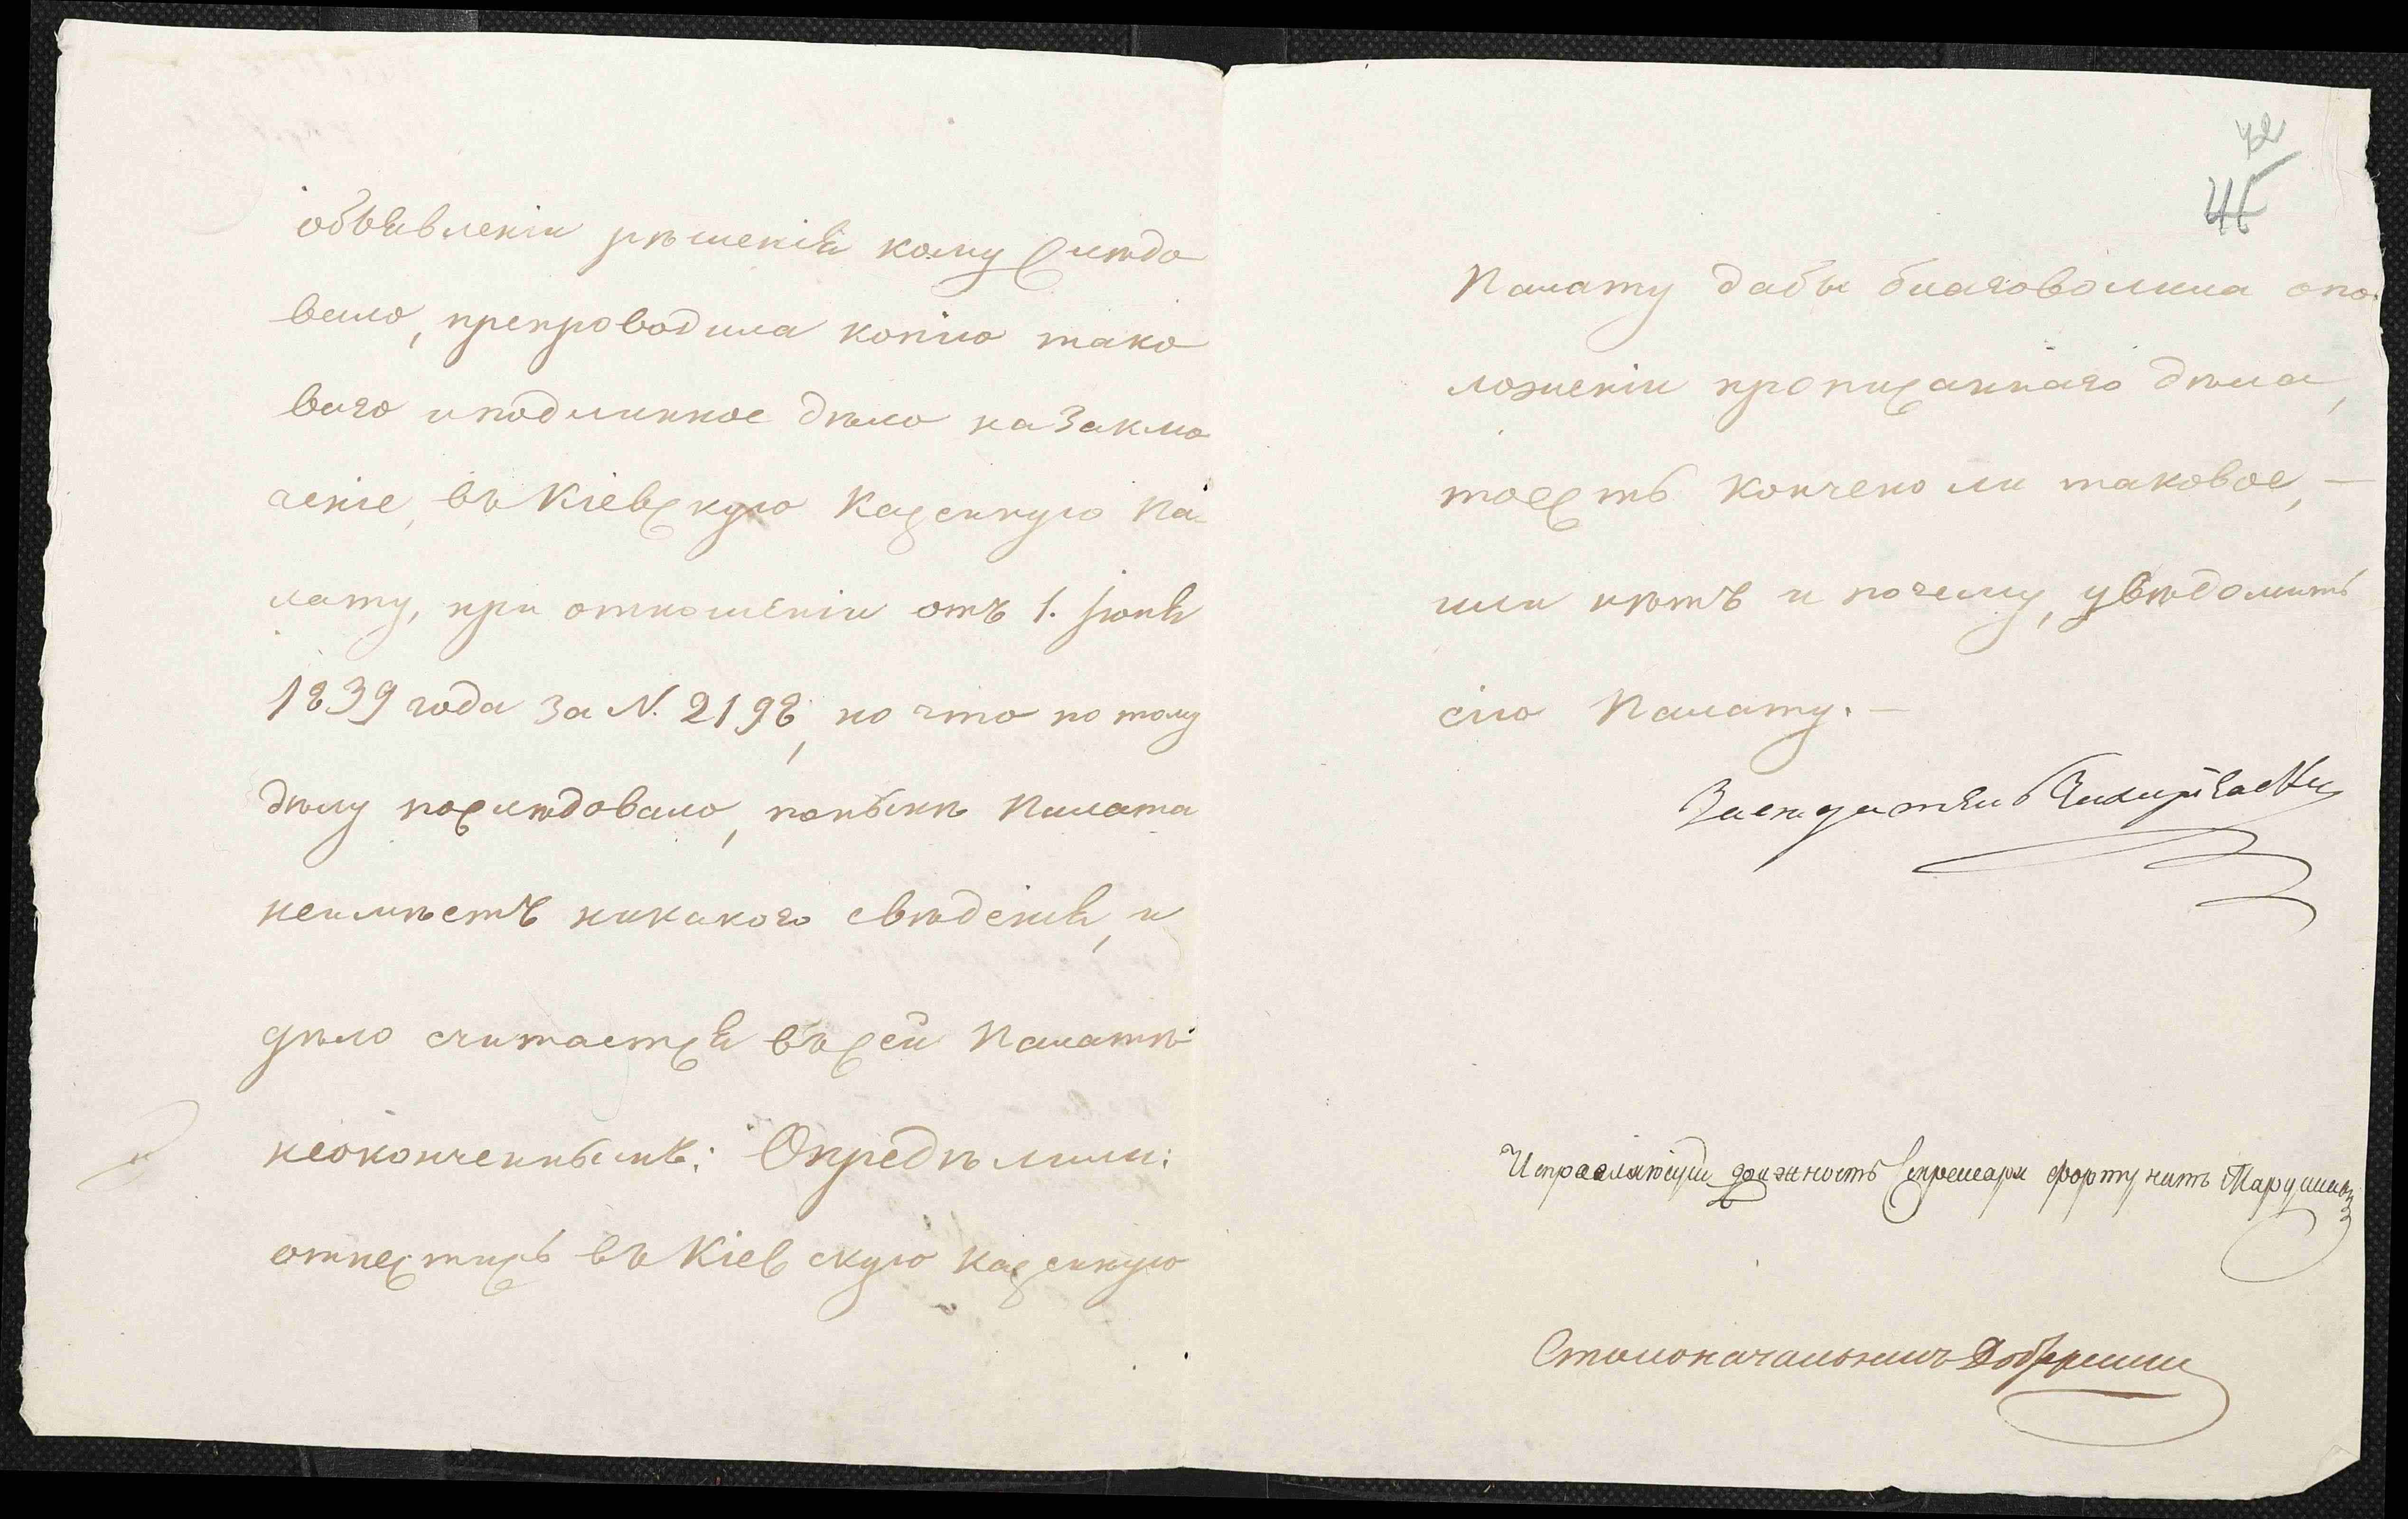 объявленіи рѣшенія кому слѣдо
вало, препроводила копію тако
ваго и подлинное дѣло на заклю
ченіе, въ Кіевскую Казенную Па-
лату, при отношеніи отъ 1. Іюня
1839 года за N. 2198, но что по тому
дѣлу послѣдовало, понынѣ Палата
неимѣетъ никакого свѣденія, и
дѣло считается въ сей Палатѣ
неоконченнымъ; Опредѣлили:
отнестись въ Кіевскую казенную
42
45
Палату дабы благоволила опо-
ложеніи прописаннаго дѣла,
тоесть кончено ли таковое, —
или нѣтъ и почему, увѣдомить
сію Палату. —
Засѣдатель
Исправляющій должность Секретаря Фортунатъ
Столоначальникъ